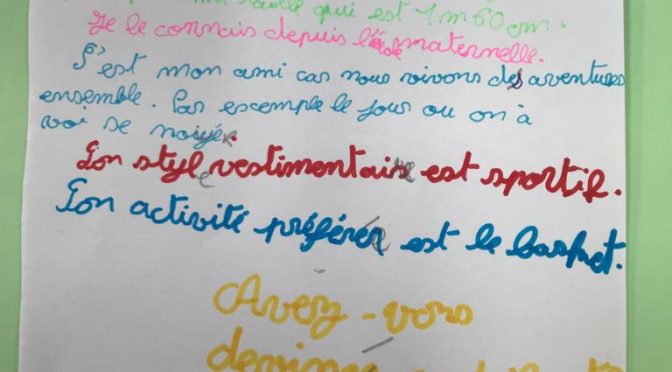 taille qui est 1m60cm.
Je le connais depuis l'é maternelle.
C'est mon ami car nous vivons des aventures
ensemble. Par escemple le jour ou on à
se noiyé.
Son style vestimentaire est sportif.
Son activité préférée est le basket.
Avez-vous